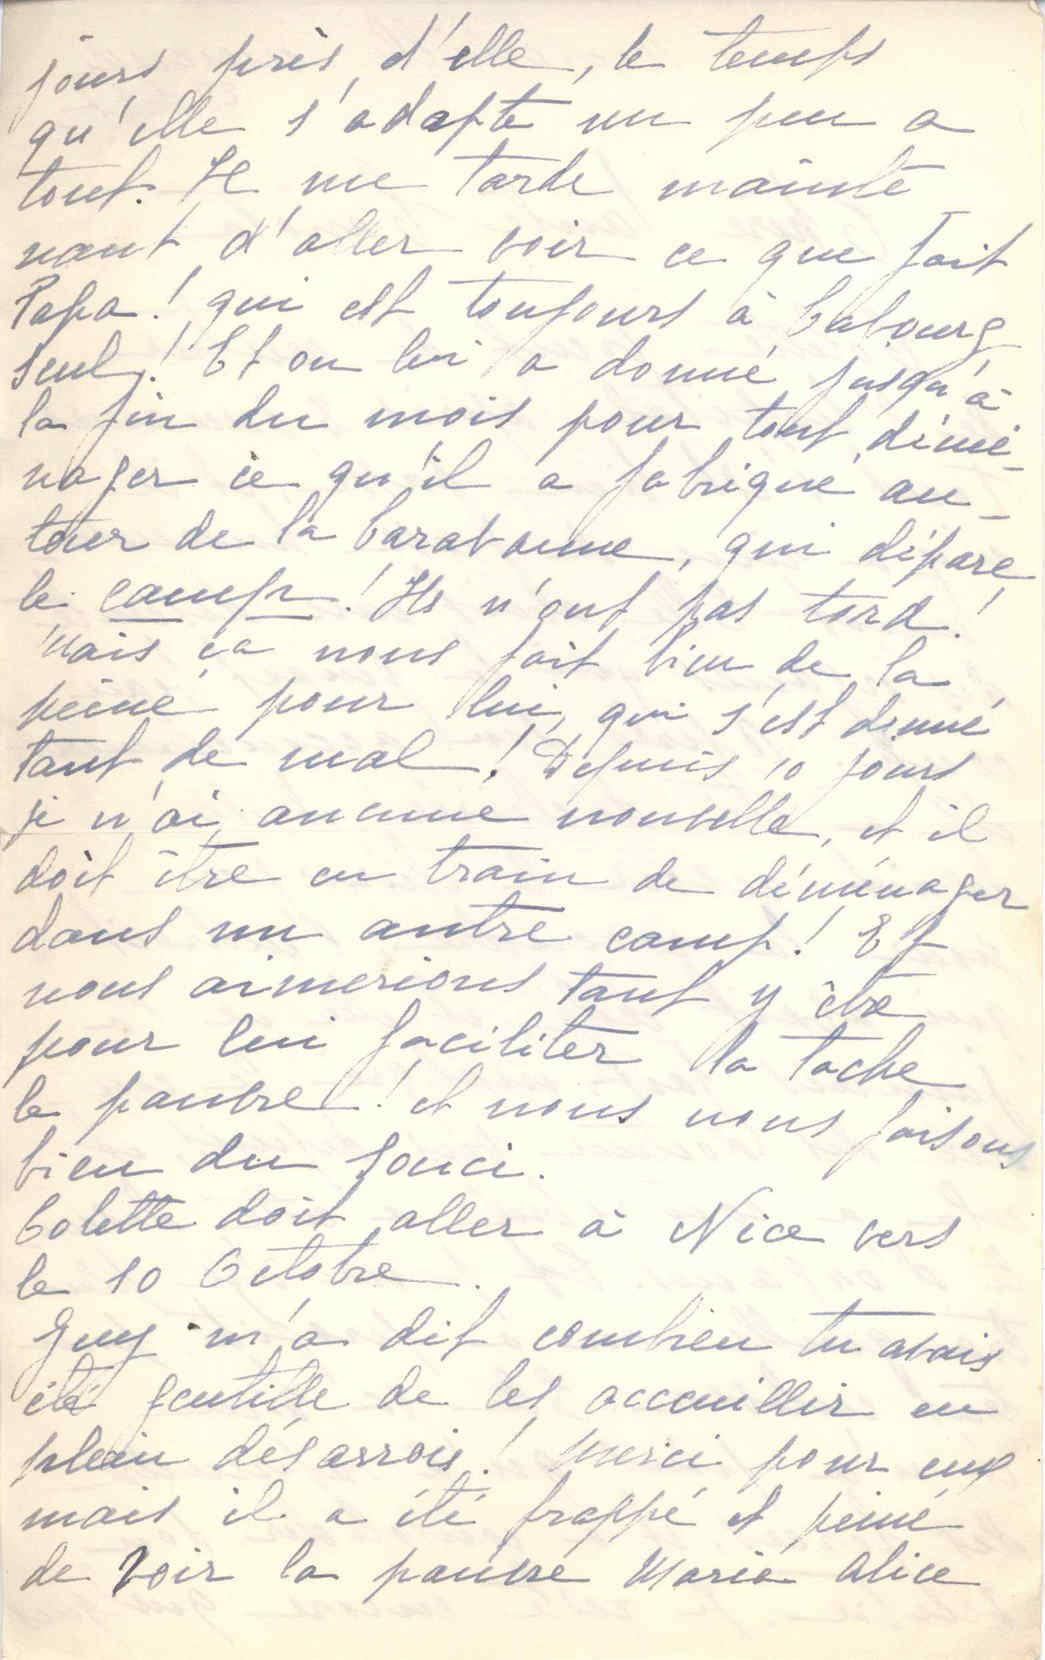 jours près d'elle, le temps
qu'elle s'adapte un peu a
tout. Il me tarde mainte
nant d'aller voir ce que fait
Papa! qui est toujours à Cabourg
seul! Et on lui a donné jusqu'à
la fin du mois pour tout démé-
nager ce qu'il a fabriqué au-
tour de la Caravanne, qui dépare
le camp! Ils n'ont pas tord!
Mais ça nous fait bien de la
peine pour lui, qui s'est donné
tant de mal! Depuis 10 jours
je n'ai aucune nouvelle, et il
doit être en train de déménager
dans un autre camp! Et
nous aimerions tant y être
pour lui faciliter la tache
le pauvre! et nous nous faisons
bien du souci.
Colette doit aller à Nice vers
le 10 Octobre.
Guy m'a dit combien tu avais
été gentille de les acceuillir en
plein désarrois! Merci pour eux
mais il a été frappé et peiné
de voir la pauvre Marie Alice